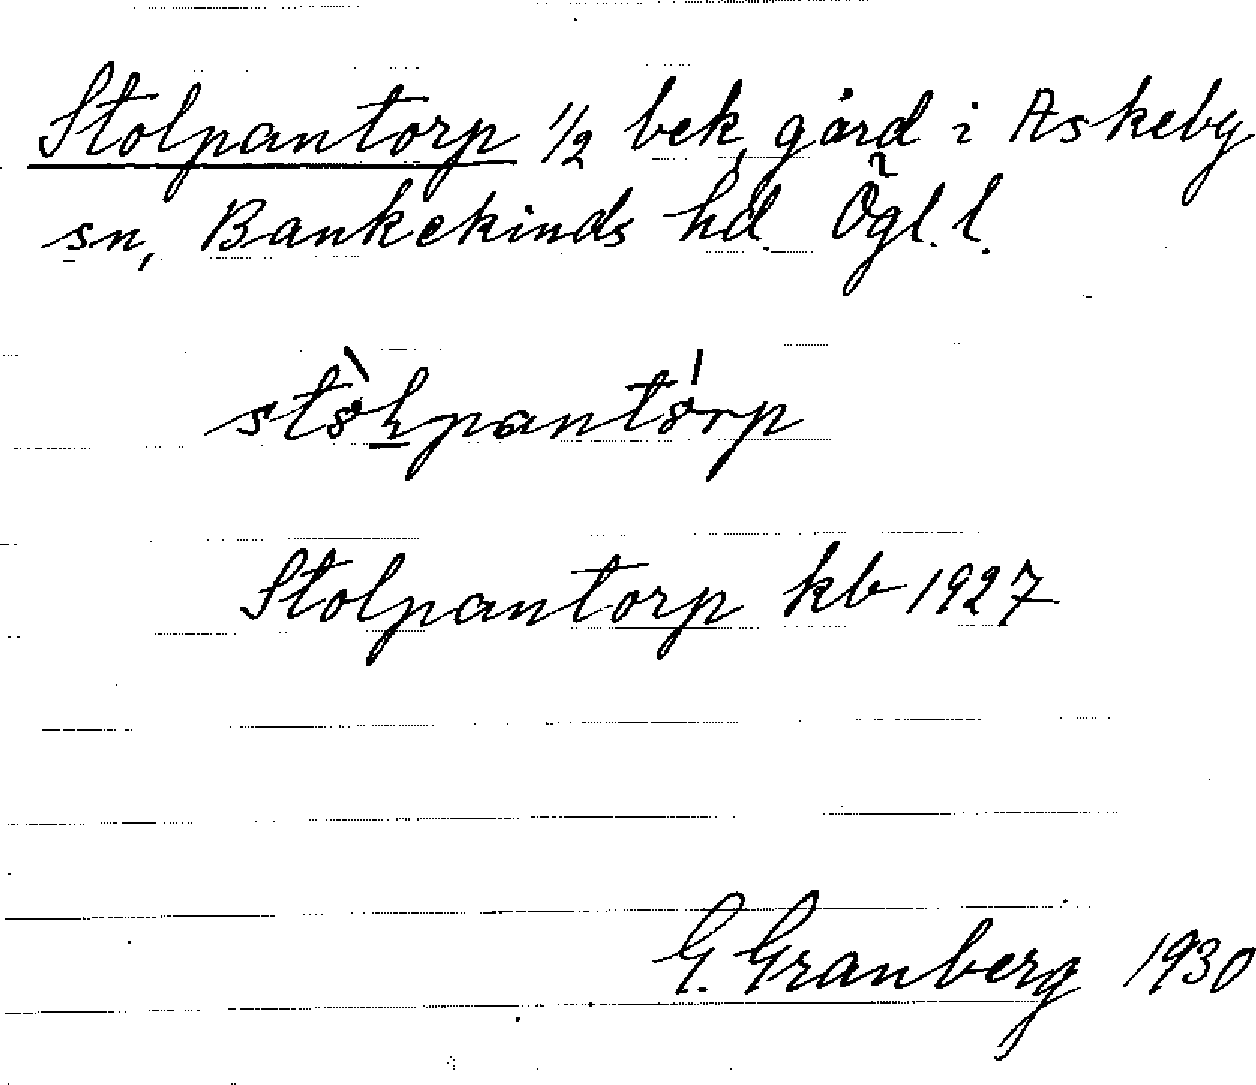 Stolpantorp 1/2 bek. gård i Askeby
sn, Bankekinds hd. Ögl. l.
Stolpantorp kb 1927
G. Granberg 1930